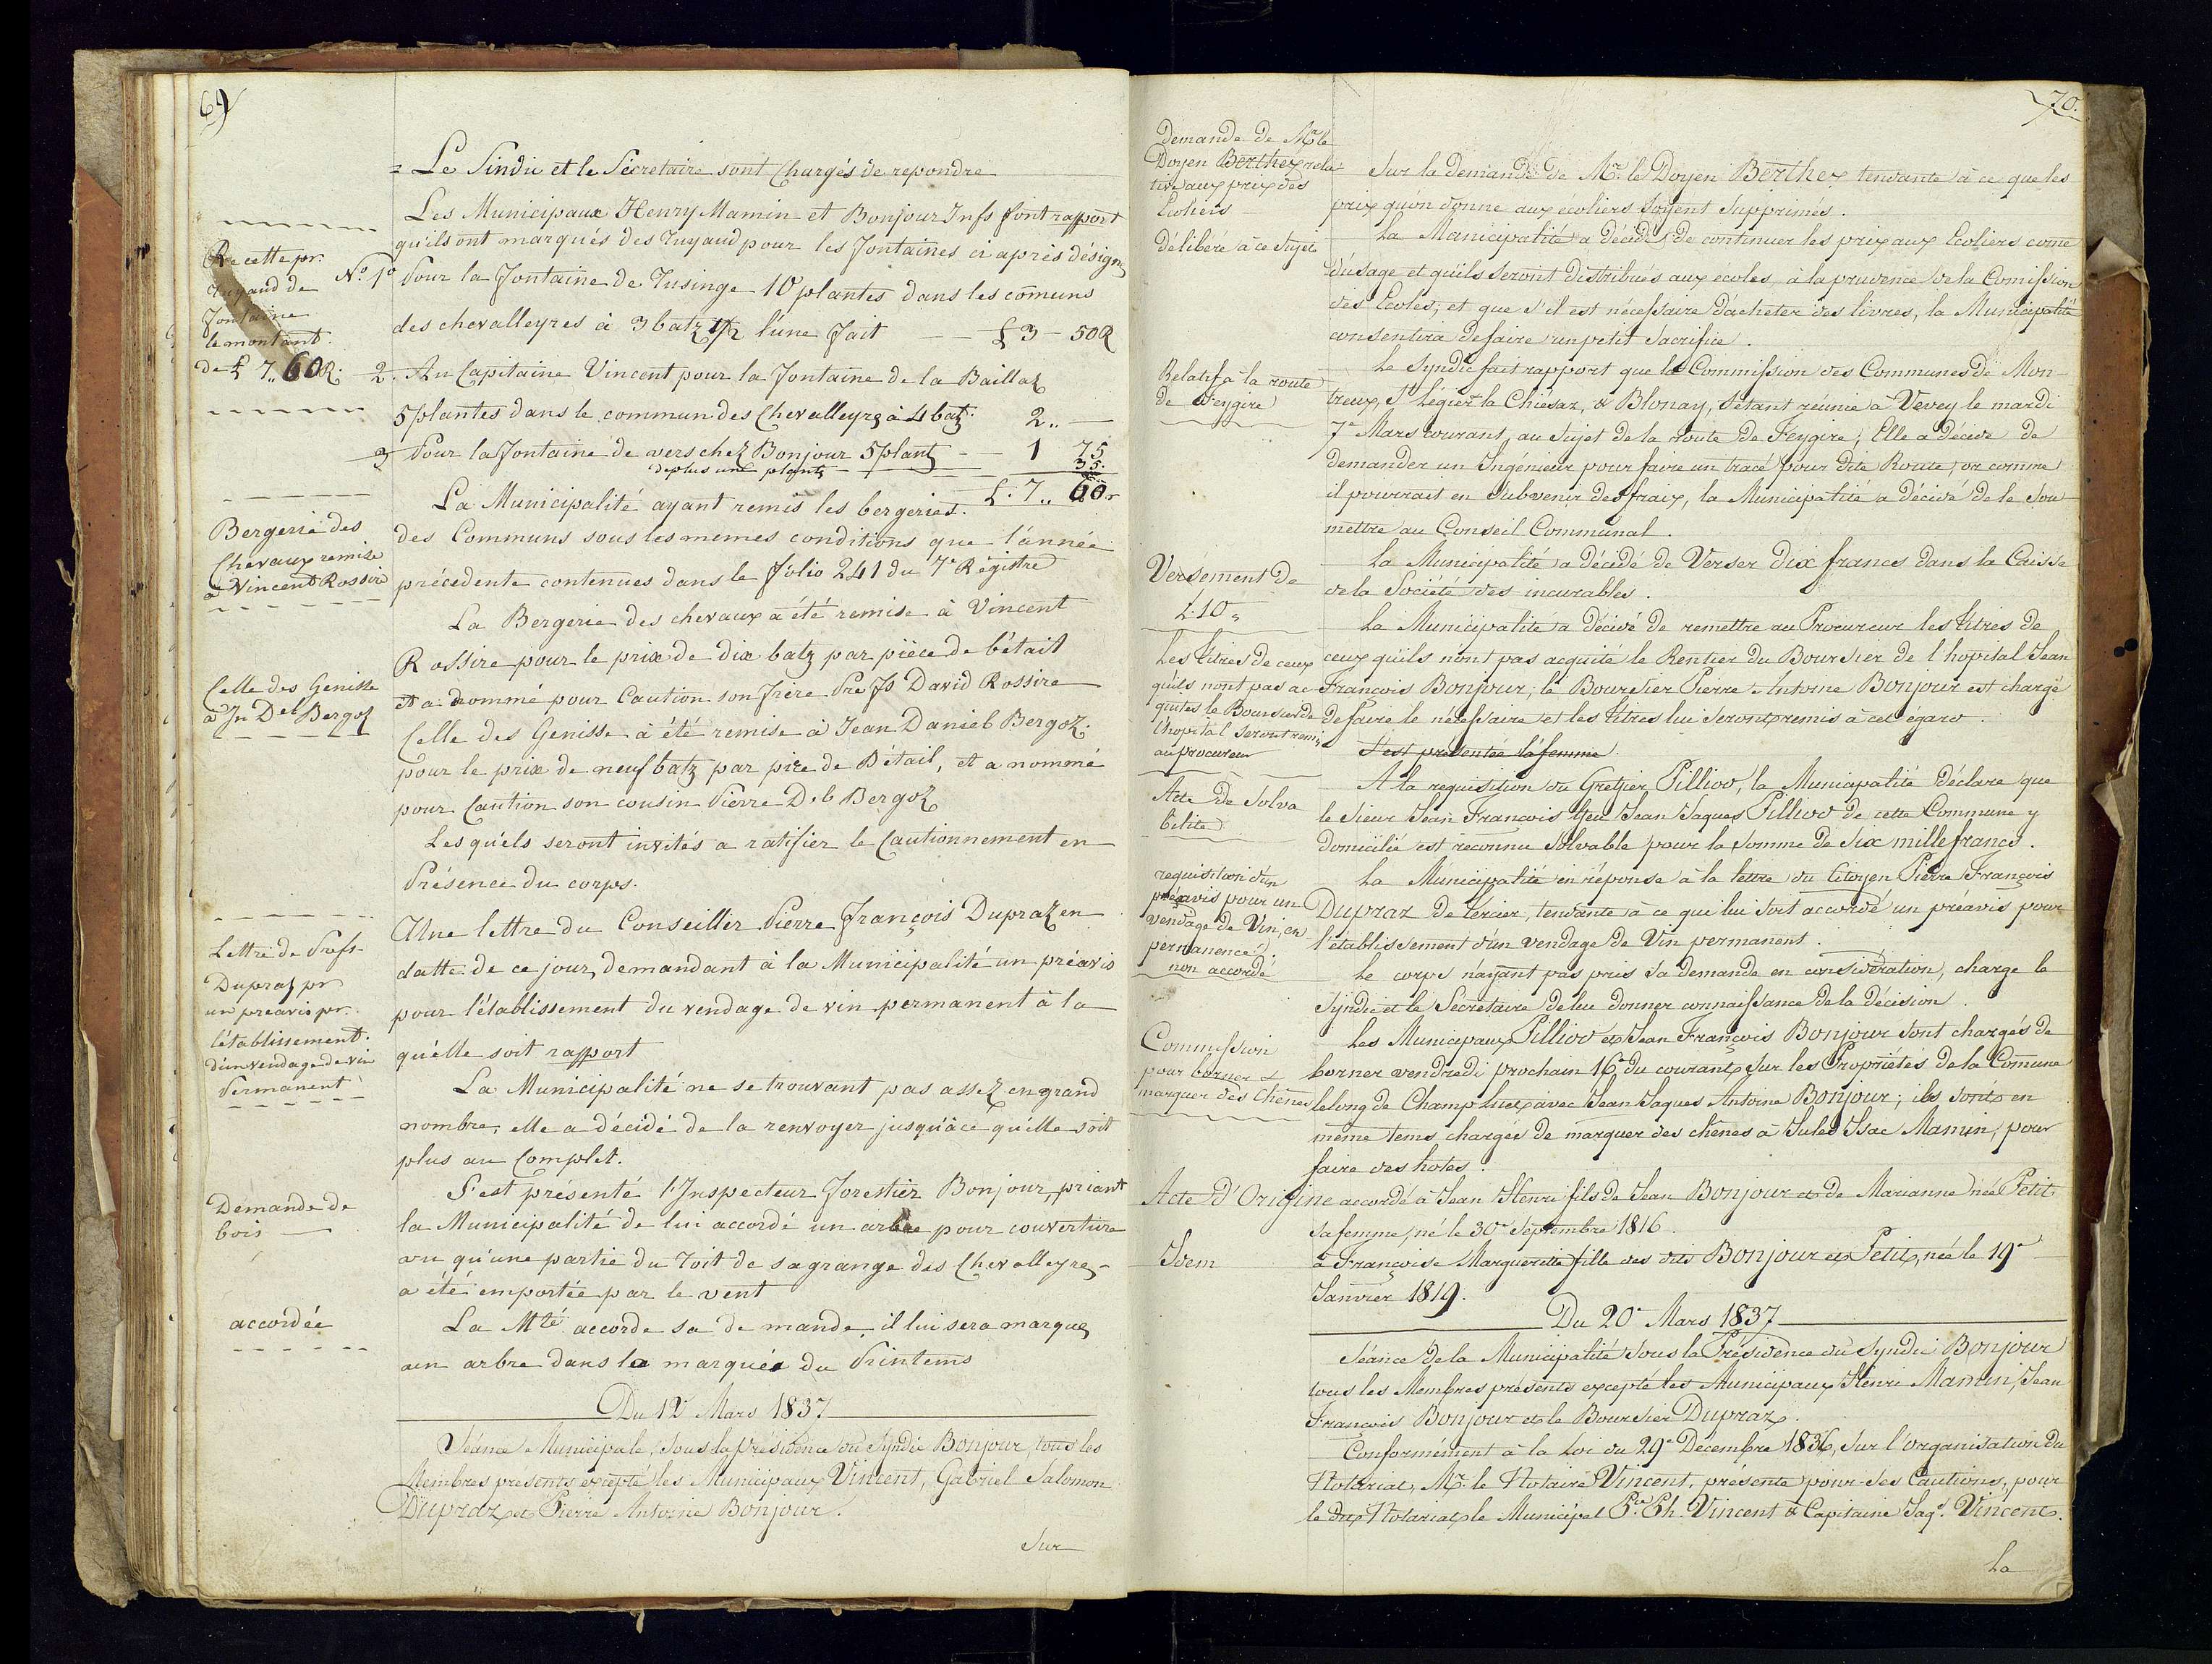 69
= Le Sindic et le Secretaire sont Chargés de repondre
Les Municipaux Henry Mamin et Bonjour Insfr font rapport
qu'ils ont marqués des Tuyaud pour les fontaines ci après désign
Recette pr.
Tuyaud de
fontaine
le montant.
de £ 7,, 60 R.
No. 1o Pour la fontaine de Tusinge 10 plantes dans les comuns
des chevalleyres à 3 batz 1/2 l'une fait £ 3 - 50 R
2. Au Capitaine Vincent pour la fontaine de la Baillaz
5 plantes dans le commun des Chevalleyrs à 4 batz. 2,, -
3 Pour la fontaine de vers chez Bonjour 5 plant - 1 75
de plus une plants - 35.
£. 7,, 60 r
La Municipalité ayant remis les bergeries.
des Communs sous les memes conditions que l'année
précedente contenues dans le folio 241 du 7e Régistre
Bergerie des
Chevaux remise
à Vincent Rossire
La Bergerie des chevaux a été remise à Vincent
Rossire pour le prix de dix batz par pièce de bétail
et a nommé pour Caution son frère Pre Fs David Rossire
Celle des Genisse
à Jn Del Bergoz
Celle des Genisse à été remise à Jean Daniel Bergoz.
pour le prix de neuf batz par pice de Bétail, et a nommé
pour Caution son cousin Pierre D.l Bergoz
Lesquels seront invités a ratifier le Cautionnement en
Présence du corps.
Lettre de Prefs
Dupraz pr
un preavis pr.
l'établissement.
d'un vendage de vin
Permanent
Une lettre du Conseiller Pierre François Dupraz en
datte de ce jour, demandant à la Municipalité un préavis
pour l'établissement du vendage de vin permanent à la
quélle soit rapport
La Municipalité ne se trouvant pas assez en grand
nombre, elle a décidé de la renvoyer jusqu'àce qu'elle soit
plus au Complet.
Demande de
bois
S'est présenté l'Inspecteur Forestier Bonjour, priant
la Municipalité de lui accordé un arbre pour couverture
vu qu'une partie du Toit de sa grange des Chevalleyres
a été emportée par le vent
accordée
La Mté accorde sa de mande, il lui sera marqué
un arbre dans la marquée du Printems
Du 12e Mars 1837
Séance Municipale, sous la présidence du Syndic Bonjour, tous les
Membres presents excepté les Municipaux Vincent, Gabriel Salomon
Dupraz et Pierre Antoine Bonjour.
Sur
70.
Demande de Mr le
Doyen Berthex rela
tive aux prix des
Ecoliers
Délibéré à ce sujet
Sur la demande de Mr. le Doyen Berthex tendante à ce que les
prix qu'on donne aux écoliers soyent supprimés.
La Municipalité a décidé, de continuer les prix aux Ecoliers come
d'usage et qu'ils seront distribués aux écoles, à la prudence de la Comission
des Ecoles, et que s'il est nécessaire d'acheter des livres, la Municipalité
consentira de faire un petit sacrifice.
Relatif à la route
de Feygire
Le Syndic fait rapport que la Commission des Communes de Mon-
treux, St Légier la Chiésaz, & Blonay, s'étant réunie à Vevey le mardi
7e Mars courant, au sujet de la route de Feygire; Elle a décidé de
demander un Ingénieur pour faire un tracé pour dite Route, or comme
il pourrait en subvenir des fraix, la Municipalité a décidé de le sou-
mettre au Conseil Communal.
Versement de
£. 10 ,,
La Municipalité a décidé de Verser dix francs dans la Caisse
de la Société des incurables.
Les titres de ceux
qu'ils nont pas ac
quites le Boursier de
l'hopital seront remis
au procureur
La Municipalité a décidé de remettre au Procureur les titres de
ceux qu'ils n'ont pas acquité le Rentier du Boursier de l'hopital Jean
François Bonjour; le Boursier Pierre Antoine Bonjour est chargé
de faire le nécessaire et les titres lui seront remis à cet égard.
S'est présentée la femme.
Acte de Solva
bilité
A la requisition du Greffier Pilliod, la Municipalité déclare que
le Sieur Jean François feu Jean Jaques Pilliod de cette Commune y
domicilié est reconnu solvable pour la somme de Six mille francs.
requisition d'un
préavis pour un
vendage de Vin, en
permanence,
non accordé
La Municipalité en réponse à la lettre du Citoyen Pierre François
Dupraz de Tercier, tendante à ce qui lui soit accordé un préavis pour
l'établissement d'un vendage de Vin permanent.
Le corps n'ayant pas pris sa demande en considération, charge le
Syndic et le Sécretaire de lui donner connaissance de la décision.
Commission
pour borner &
marquer des Chênes
Les Municipaux Pilliod et Jean François Bonjour sont chargés de
borner vendredi prochain 16e du courant, sur les Propriétés de la Comune
le long de Champ Luet avec Jean Jaques Antoine Bonjour; ils sont en
même tems chargés de marquer des chênes à Jules Isac Mamin, pour
faire des hotes.
Acte d'Origine accordé à Jean Henri fils de Jean Bonjour et de Marianne née Petit
sa femme, né le 30e Septembre 1816.
Idem à Françoise Marguerite fille des dits Bonjour et Petit, née le 19e
Janvier 1819.
Du 20e Mars 1837
Séance de la Municipalité sous la Présidence du Syndic Bonjour
tous les Membres présents excepté les Municipaux Henri Mamin, Jean
François Bonjour et le Boursier Dupraz.
Conformément à la Loi du 29e Décembre 1836, sur l'organisation du
Notariat, Mr. le Notaire Vincent, présente pour ses Cautions, pour
le dit Notariat, le Municipal P.re Ph. Vincent & Capitaine Jaqs. Vincent.
La